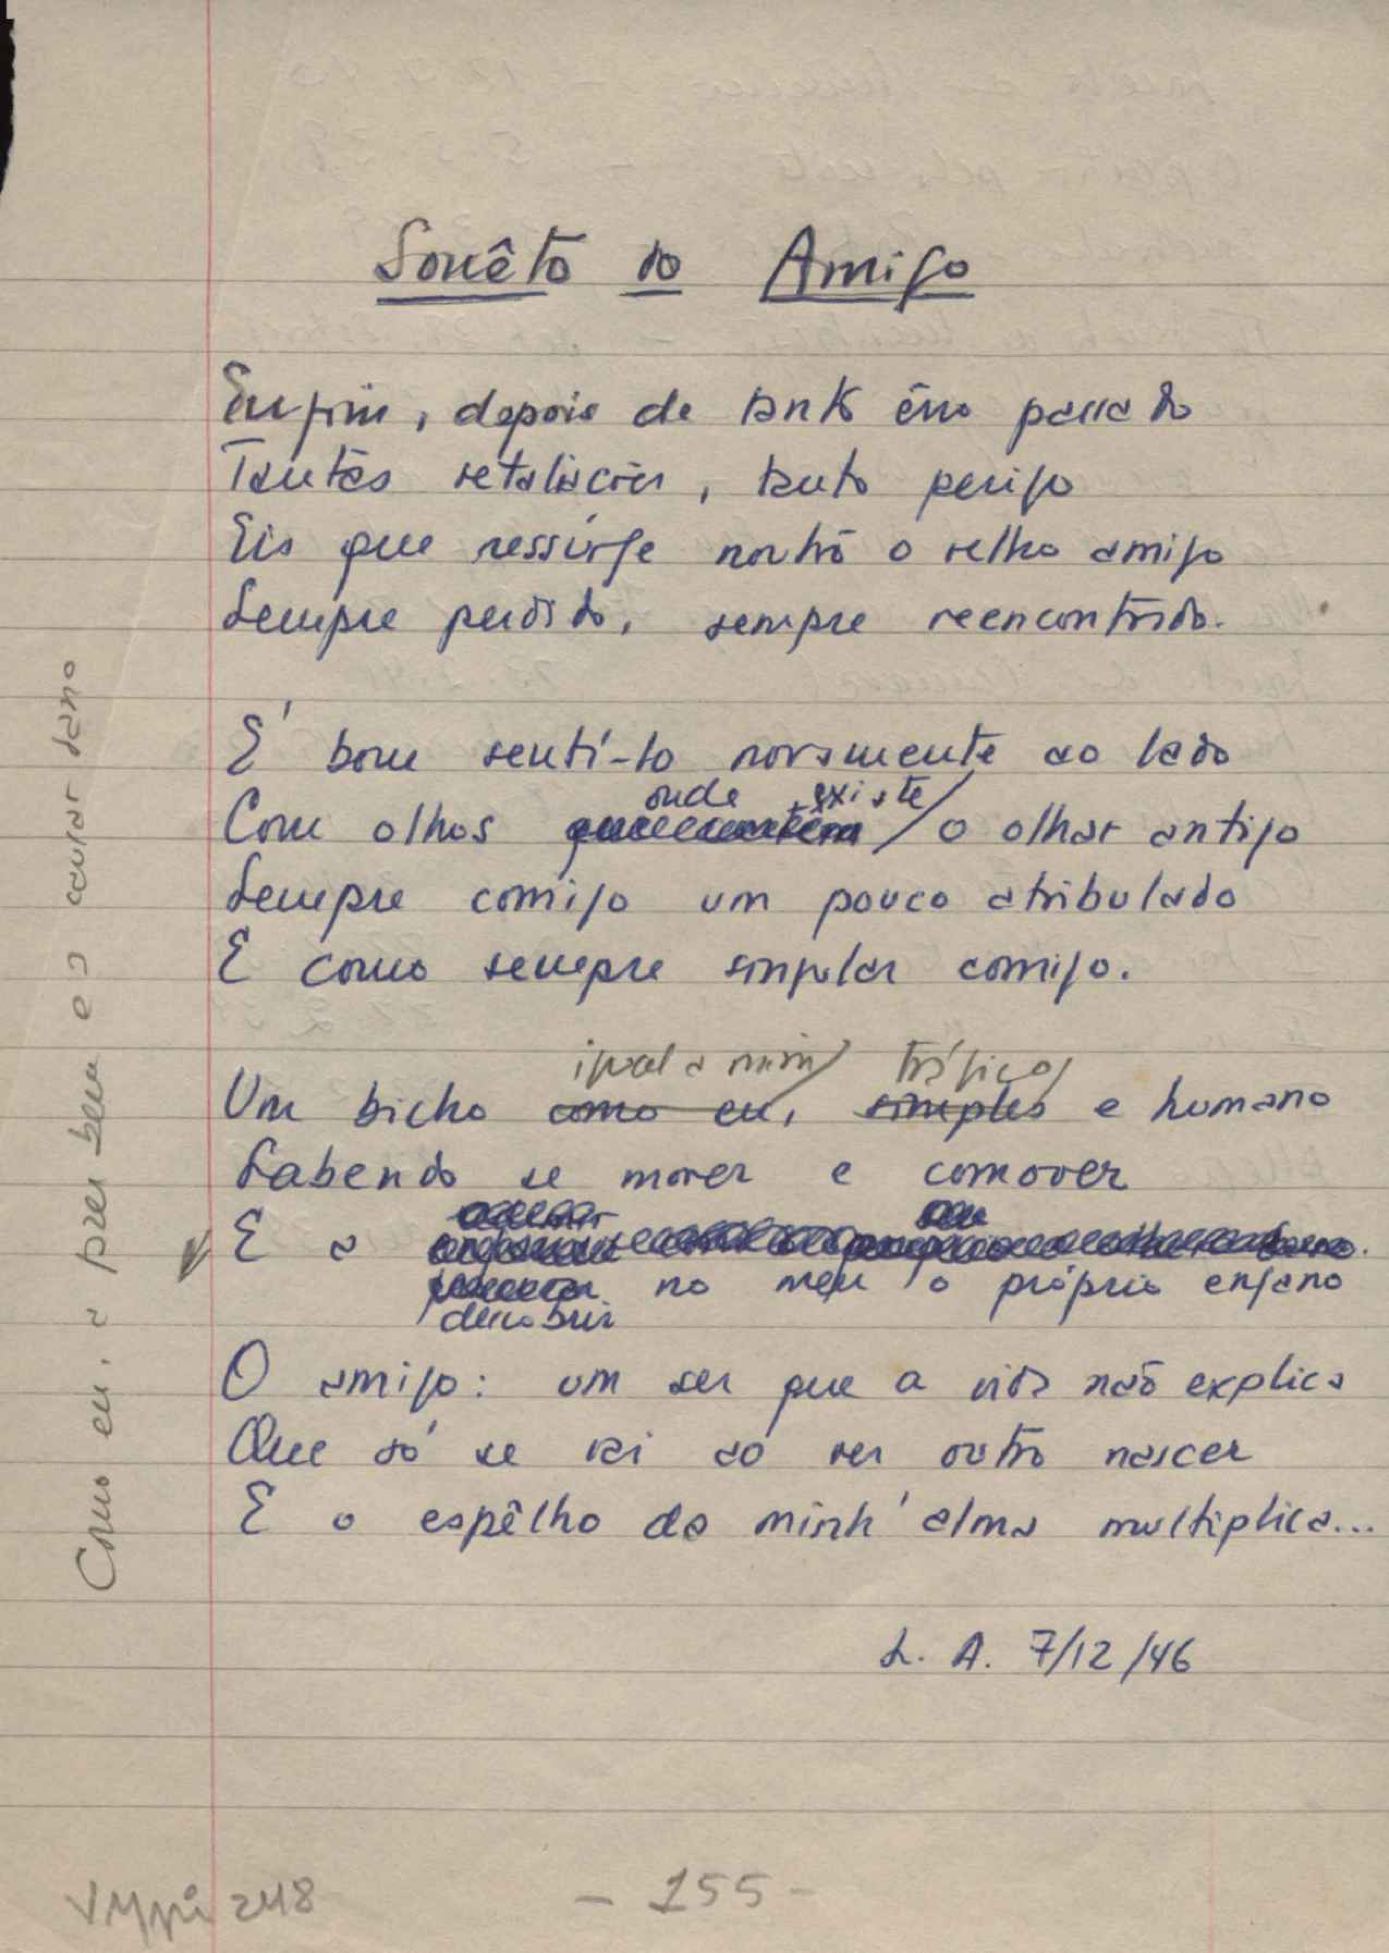 Sonêto do Amigo
Enfim, depois de tanto êrro passado
Tantas retaliações, tanto perigo
Eis que ressurge noutro o velho amigo
Sempre perdido, sempre reencontrado.
É bom sentí-lo novamente ao lado
onde existe
Com olhos que contêm o olhar antigo
Sempre comigo um pouco atribulado
E como sempre singular comigo.
igual a mim, trágico
Um bicho como eu, simples e humano
Sabendo se mover e comover
seu
E a
no meu o próprio engano
descobrir
O amigo: um ser que a vida não explica
Que só se vai ao ver outro nascer
E o espêlho de minh'alma multiplica...
L. A. 7/12/46
Como eu, a
causar dano
248
- 155 -